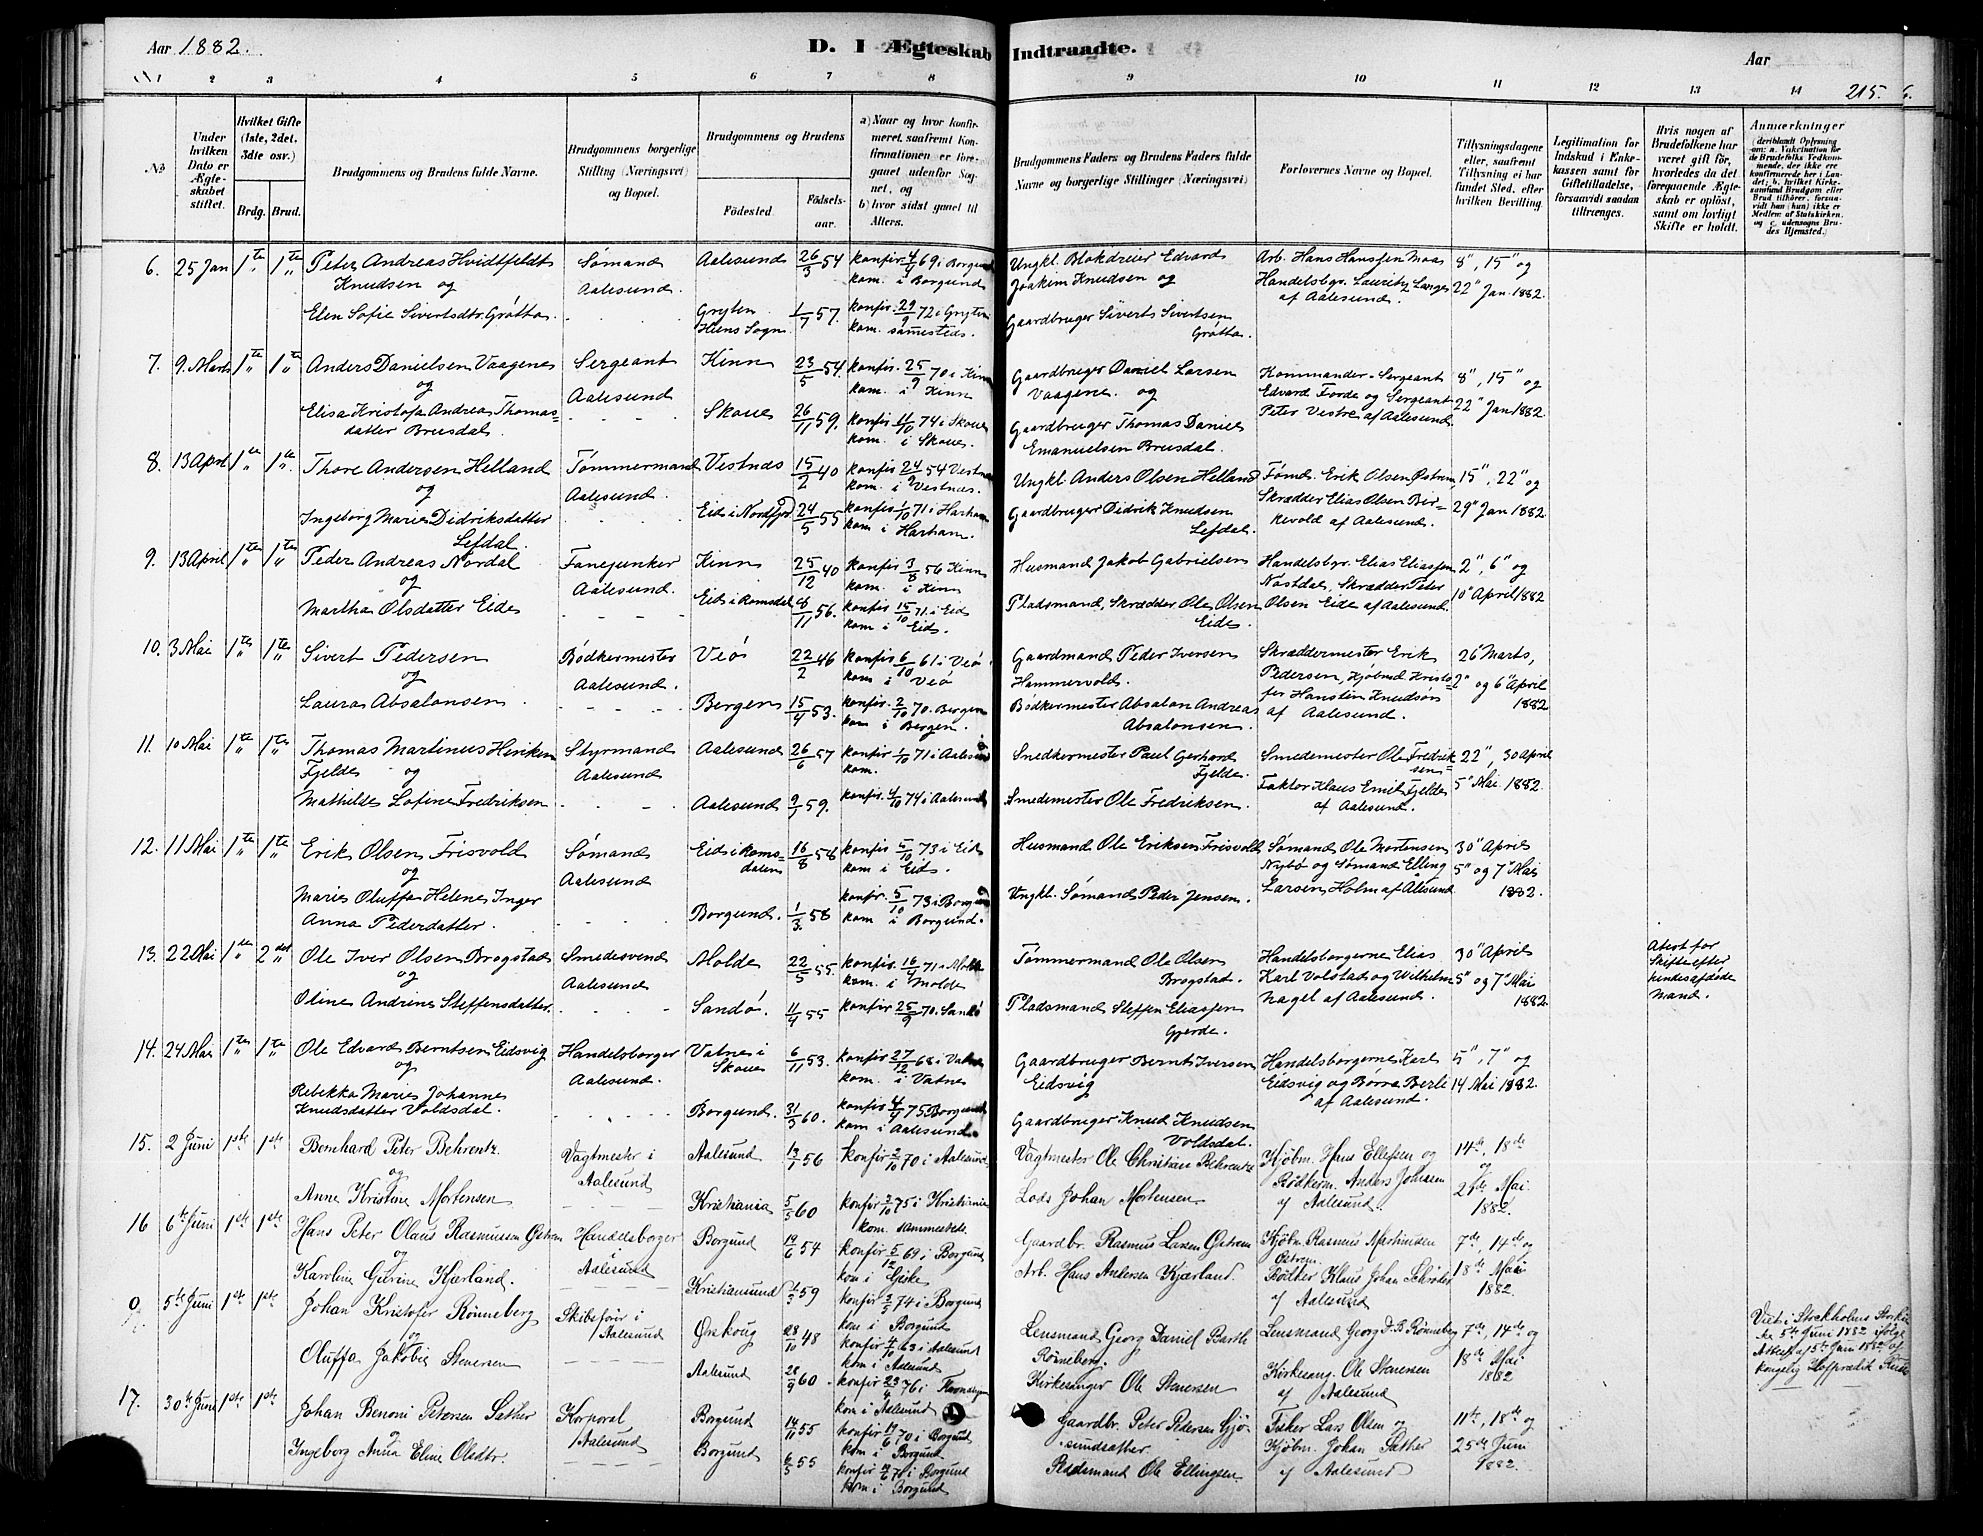 Aar 1882.
D. I Ægteskab Indtraadte.
Aar
215.
1 2 3 4 5 6 7 8 9 10 11 12 13 14
No
Under hvilken Dato er Ægteskabet stiftet.
Hvilket Gifte (1ste, 2det, 3die osv.)
Brdg. Brud.
Brudgommens og Brudens fulde Navne.
Brudgommens borgerlige Stilling (Næringsvei) og Bopæl.
Brudgommens og Brudens
Födested. Födselsaar.
a) Naar og hvor konfirmeret, saafremt Konfirmationen er foregaaet udenfor Sognet, og
b) hvor sidst gaaet til Alters.
Brudgommens Faders og Brudens Faders fulde Navne og borgerlige Stillinger (Næringsvei)
Forlovernes Navne og Bopæl.
Tillysningsdagene eller, saafremt Tillysning ei har fundet Sted, efter hvilken Bevilling.
Legitimation for Indskud i Enkekassen samt for Giftetilladelse, forsaavidt saadan tiltrænges.
Hvis nogen af Brudefolkene har været gift før, hvorledes da det foregaaende Ægteskab er oplöst, samt om lovligt Skifte er holdt.
Anmærkninger
6. 25 Jan 1te 1te Peter Andreas Hvidtfeldt Sømand Aalesund 26/3 54 konfir. 4/9 69 i Borgund Ungkl. Blokdreier Edvard Arb. Hans Hanssen Moa 8", 15" og
Knudsen og Aalesund. kom. i Borgund Joakim Knudsen og Handelsbgr. Lauritz Langes 22" Jan. 1882.
Elen Sofie Sivertsdtr. Grøtta. Gryten Hens Sogn. 1/7 57. konfir. 29/9 72 i Gryten Gaardbruger Siverts Sivertsen af Aalesund.
kom. sammesteds. Grøtta.
7. 9 Marts 1te 1te Anders Danielsen Vaagenes Sergeant Kinn 23/5 54. konfir. 25/9 70 i Kinn Gaardbruger Daniel Larsen Kommander-Sergeant 8", 15" og
og Aalesund kom. i Kinn Vaagene. og Edvard Forde og Sergeant 22" Jan 1882.
Elisa Kristofa Andrea Thomas= Skoue 26/11 59. konfir. 11/10 74 i Skoue Gaardbruger Thomas Daniel Peter Vestre af Aalesund.
datter Brusdal. kom. i Skoue. Emanuelsen Brusdal.
8. 13 April 1te 1te Thore Andersen Helland Tømmermand Vestnes 15/2 40 konfir. 24/9 54 Vestnes Ungkl. Anders Olsen Helland Tømd. Erik Olsen Østrem, 15", 22" og
og Aalesund. kom. i Vestnes. Skrædder Elias Olsen Bir= 29" Jan 1882.
Ingeborg Marie Didriksdatter Eid i Nordfjord 24/5 55 konfir. 1/10 71 i Harham Gaardbruger Didrik Knudsen kevold af Aalesund.
Lefdal. kom i Harham. Lefdal.
9. 13 April 1te 1te Peder Andreas Nordal Fanejunker Kinn 25/12 40 konfir 3/8 56 Kinn Husmand Jakob Gabrielsen Handelsbgr. Elias Eliassen 2", 6" og
og Aalesund. kom. i Kinn Nøstdal, Skrædder Peter 10" April 1882
Martha Olsdatter Eide Eid i Romsdal 8/11 56. konfir 15/10 71. i Eid Pladsmand, Skrædder Ole Olsen Olsen Eide af Aalesund.
kom i Eid. Eide.
10. 3 Mai 1te 1te Sivert Pedersen Bødkermester Veø 22/2 46 konfir 6/10 61 i Veø Gaardmand Peder Iversen Skræddermester Erik 26" Marts,
og Aalesund. kom i Veø Hammervold. Pedersen, Kjøbmd Kristo= 2" og 6" April
Laura Absalonsen. Bergen 15/4 53. konfir. 2/10 70. Bergen Bødkermester Absalon Andreas fer Hansten Knudsøn 1882
kom i Bergen. Absalonsen. af Aalesund.
11. 10 Mai 1te 1te Thomas Martinus Henriksen Styrmand Aalesund 26/6 57 konfir 1/10 71 i Aalesund Snedkermester Paul Gerhard Smedemester Ole Fredrik= 22", 30 April
Fjelde og Aalesund kom. Fjelde. sen 5" Mai 1882.
Mathilde Lofine Fredriksen Aalesund 9/7 59. konfir. 4/10 74 i Aalesund Smedemester Ole Fredriksen. Faktor Klaus Emil Fjelde
af Aalesund.
12. 11 Mai 1te 1te Erik Olsen Frisvold Sømand Eid i Roms= 16/8 58 konfir 5/10 73 i Eid Husmand Ole Eriksen Frisvold Sømand Ole Mortensen 30" April
og Aalesund dalen kom i Eid. Nybø og Sømand Elling 5" og 7" Mai
Marie Oluffa Helene Inger Borgund. 1/3. 58 konfir. 5/10 73 i Borgund Ungkl. Sømand Peder Jensen. Larsen Holm af Ålesund. 1882.
Anna Pederdatter. kom i Borgund.
13. 22 Mai 1te 2det Ole Iver Olsen Brogstad Smedesvend Molde 22/5 55. konfir. 16/4 71 i Molde Tømmermand Ole Olsen Handelsborgerne Elias 30" April Atest for
og Aalesund kom i Molde Brogstad. Karl Volstad og Wilhelm 5" og 7" Mai Skifte efter
Oline Andrine Steffensdatter. Sandø. 11/4 55 konfir 25/9 70. Sandø Pladsmand Steffen Eliassen Nagel af Aalesund. 1882. hendes afdøde
Gjerde. Mand.
14. 24 Mai 1te 1te Ole Edvard Berntsen Eidsvig Handelsborger Vatne i Skoue 6/11 53. konfir 27/12 68 i Vatne Gaardbruger Bernt Iversen Handelsborgerne Karl 5", 7" og
og Aalesund. kom. i Vatne Eidsvig Eidsvig og Børre Berli 14 Mai 1882.
Rebekka Marie Johanne Borgund. 31/5 60. konfir 4/4 75 Borgund Gaardbruger Knud Knudsen af Aalesund.
Knudsdatter Voldsdal. kom i Aalesund. Voldsdal.
15. 2 Juni 1ste 1ste Bernhard Peter Behrentz. Vagtmester i Aalesund 13/1 56 konfir 2/10 70 i Aalesund Vagtmester Ole Christian Behrentz Kjøbm. Hans Ellefsen og 14de, 18de
og Aalesund Bødkerm. Anders Johnsen og 21de Mai
Anne Kristine Mortensen Kristiania 5/5 60 konfir 2/10 75 i Kristiania Lods Johan Mortensen af Aalesund. 1882.
kom. sammestede.
16 6te Juni 1ste 1ste Hans Peter Olaus Rasmussen Østrem Handelsborger Borgund 19/6 54 konfir 5/12 69 i Borgund Gaardbr. Rasmus Larsen Østrem Kjøbm. Rasmus Martinusen 7de, 14de og
og i Aalesund kom i Giske Østrem 18de Mai
Karoline Gurine Kjærland. Kristiansund 1/3 59 konfir 3/5 74 i Borgund Arb. Hans Andersen Kjærland. Bødker Klaus Johan Schrøder 1882.
kom i Borgund af Aalesund
5te Juni 1ste 1ste Johan Kristofer Rönneberg Skibsfører i Ørskoug 28/10 48 konfir 4/10 63 i Aalesund Lensmand Georg Daniel Barth Lensmand Georg D. B. Rönneberg 7de, 14de og Viet i Stockholms Storkir
og Aalesund kom i Aalesund Rönneberg. 18de Mai ke 5te Juni 1882 ifølge
Oluffa Jakobie Stenersen Aalesund 28/9 60 konfir 23/4 76 i Kirkesanger Ole Stenersen Kirkesang. Ole Stenersen 1882 Attest af 5te Juni 1882 af
kom i Aalesund af Aalesund kongelig Hofprædik.
17. 30te Juni 1ste 1ste Johan Benoni Petersen Sather Korporal Borgund 14/11 55 konfir 19/6 70 i Borgund Gaardbr. Peter Pedersen Gjø- Fisker Lars Olsen og 11te, 18de og
og Aalesund kom i Borgund sundsæther. Kjøbm. Johan Sather 25de Juni
Ingeborg Anna Eline Olsdtr. Borgund 6/5 55 konfir 19/6 70 i Borgund Pladsmand Ole Ellingsen. af Aalesund 1882.
kom i Borgund